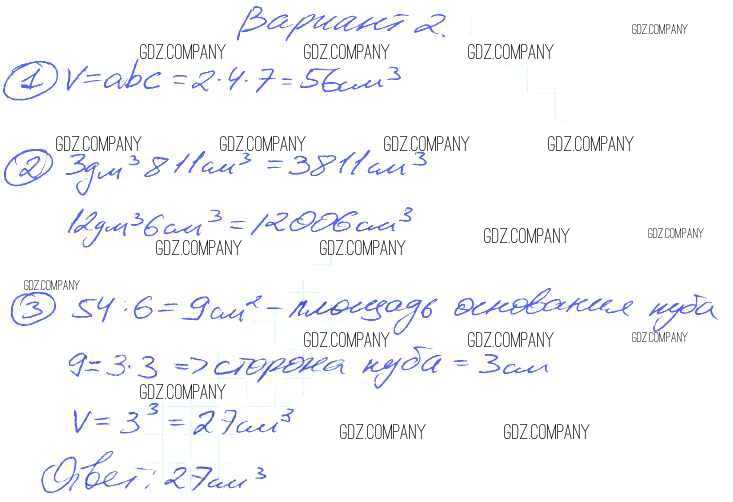 Вариант 2.
GDZ.COMPANY
GDZ.COMPANY GDZ.COMPANY GDZ.COMPANY
1 V=abc=2·4·7=56см³
GDZ.COMPANY GDZ.COMPANY GDZ.COMPANY GDZ.COMPANY
2 3дм³811см³=3811см³
12дм³6см³=12006см³
GDZ.COMPANY GDZ.COMPANY GDZ.COMPANY GDZ.COMPANY
GDZ.COMPANY
3 54·6=9см²-площадь основания куба
GDZ.COMPANY GDZ.COMPANY GDZ.COMPANY
9=3·3 => сторона куба = 3см
GDZ.COMPANY
V=3³=27см³
GDZ.COMPANY GDZ.COMPANY
Ответ: 27см³